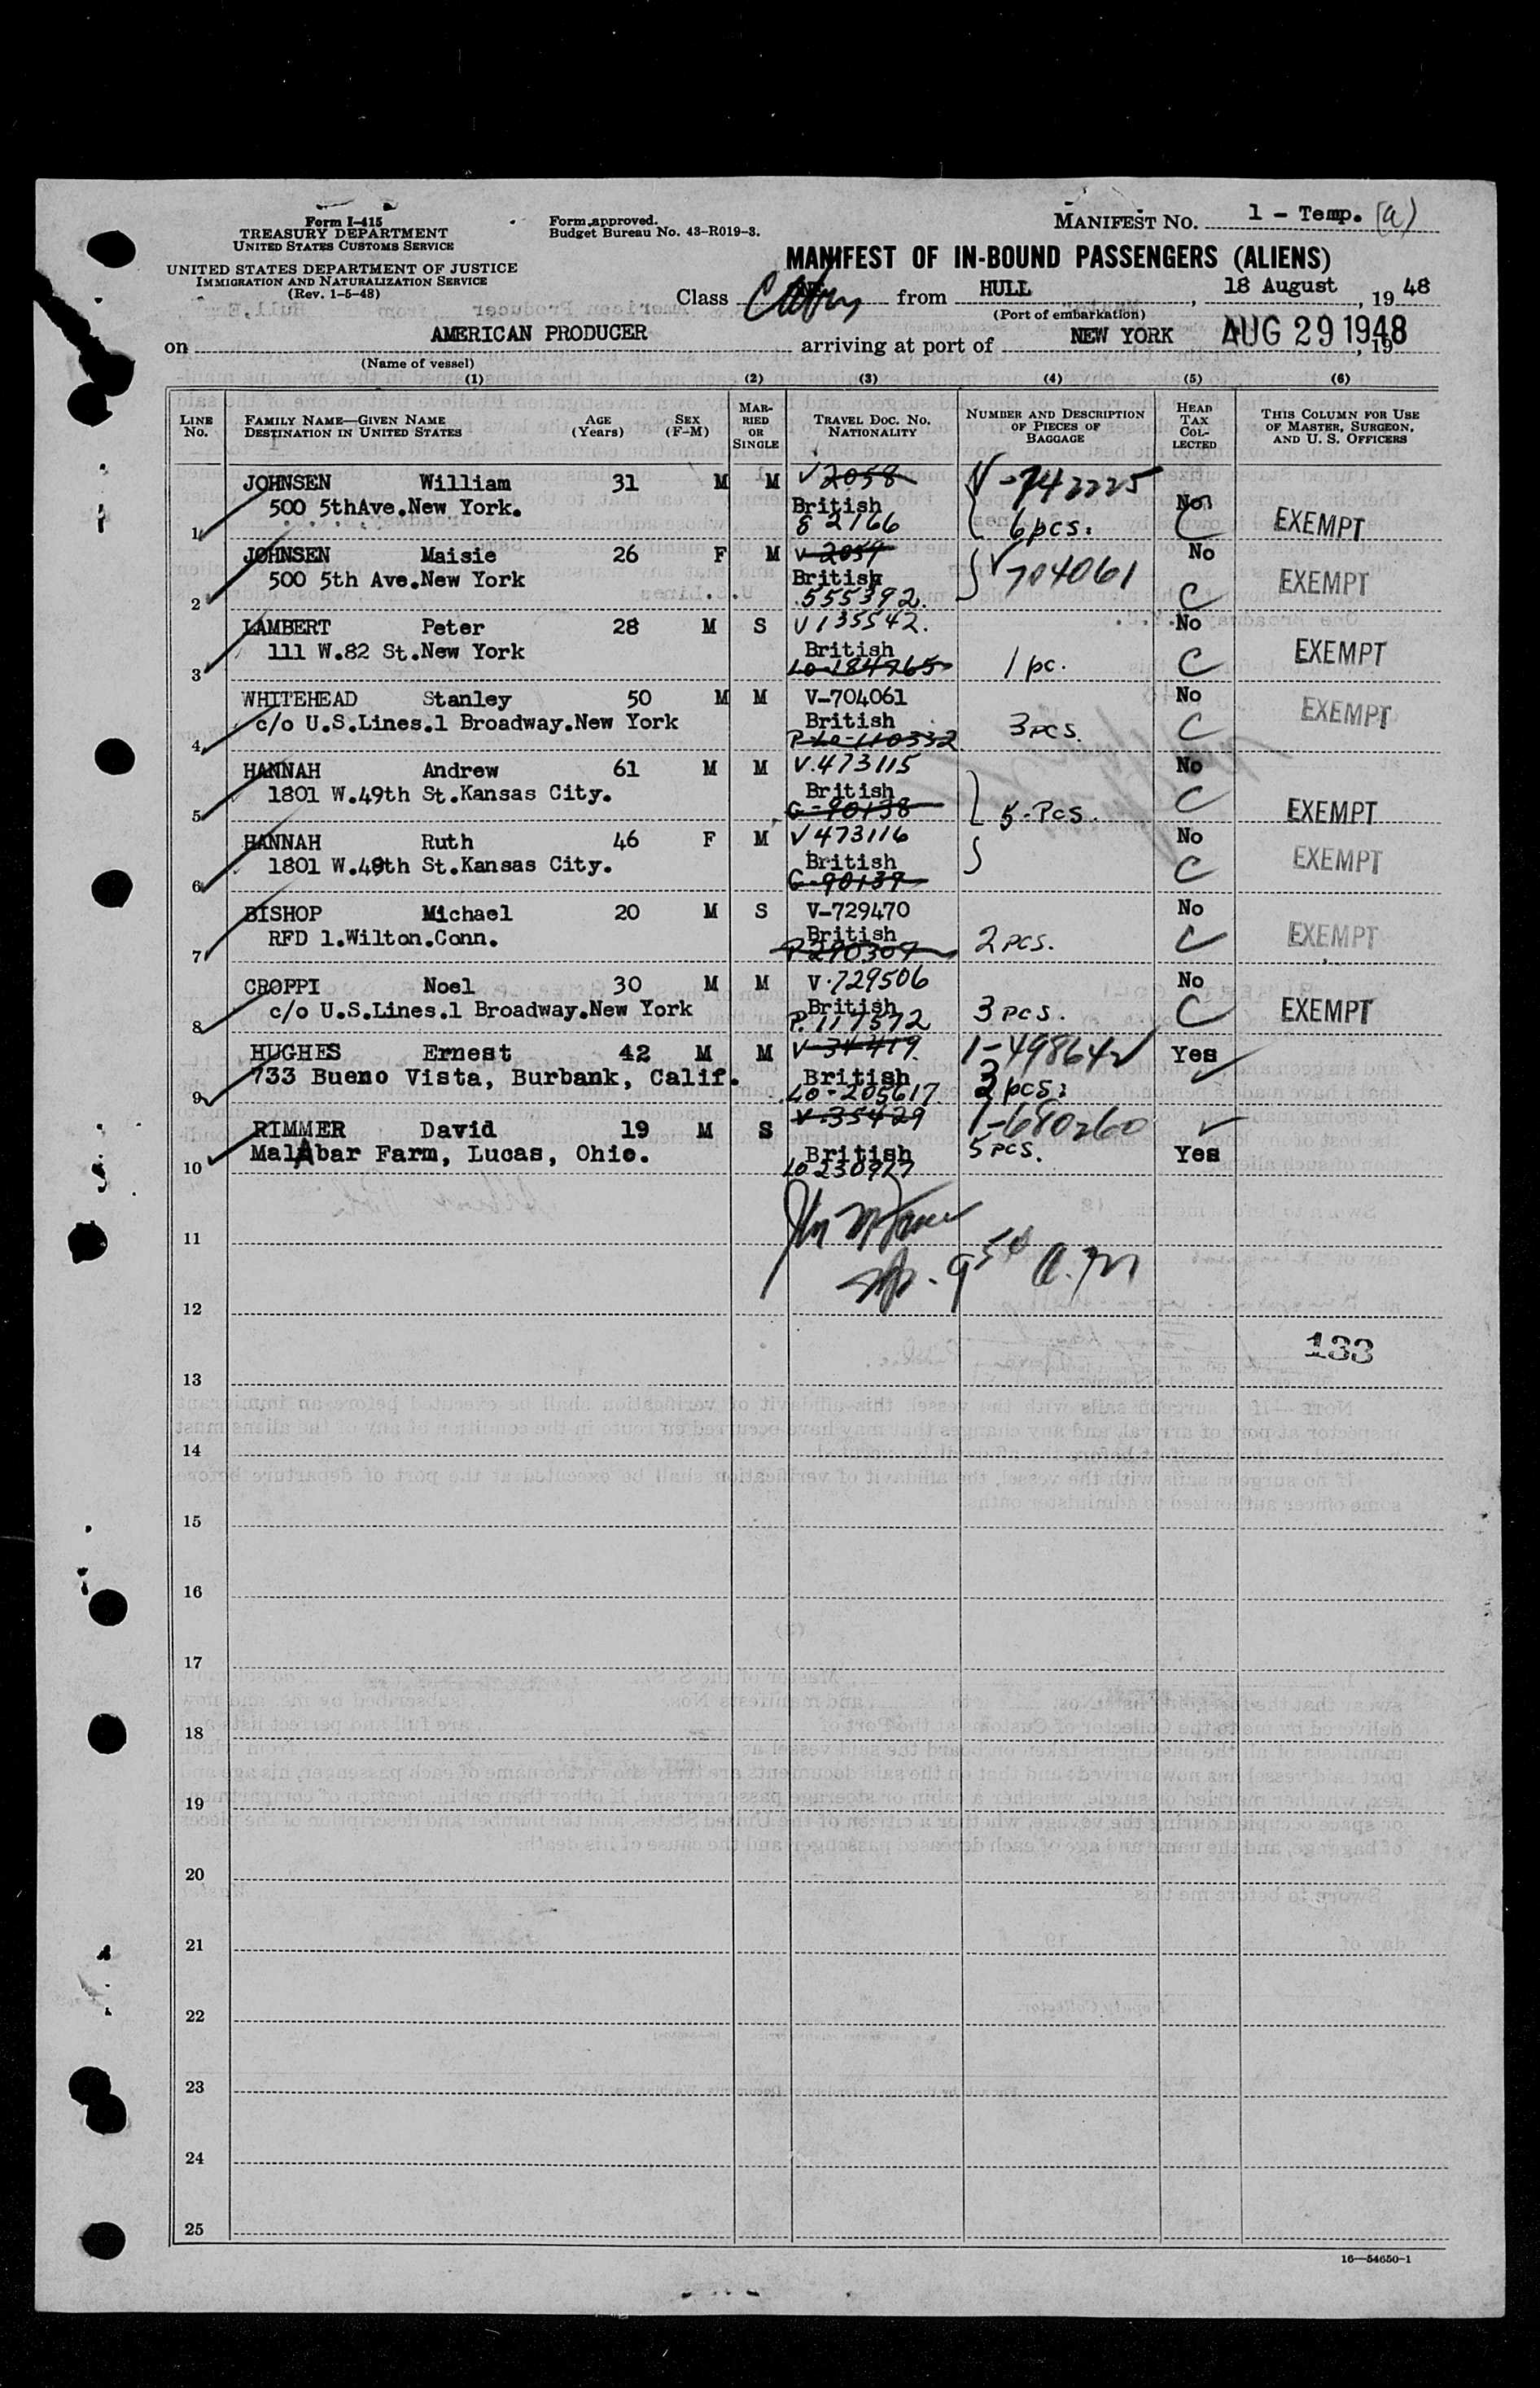 Form I-415
TREASURY DEPARTMENT
UNITED STATES CUSTOMS SERVICE
UNITED STATES DEPARTMENT OF JUSTICE
IMMIGRATION AND NATURALIZATION SERVICE
(Rev. 1-5-48)
Form approved.
Budget Bureau No. 43-R019-3.
MANIFEST NO. 1 - Temp. (a)
MANIFEST OF IN-BOUND PASSENGERS (ALIENS)
Class Cabin from HULL, 18 August, 19 48
(Port of embarkation)
on AMERICAN PRODUCER arriving at port of NEW YORK AUG 29 1948, 19
(Name of vessel)
(1) (2) (3) (4) (5) (6)
LINE No. FAMILY NAME—GIVEN NAME DESTINATION IN UNITED STATES AGE (Years) SEX (F-M) MARRIED OR SINGLE TRAVEL DOC. NO. NATIONALITY NUMBER AND DESCRIPTION OF PIECES OF BAGGAGE HEAD TAX COLLECTED THIS COLUMN FOR USE OF MASTER, SURGEON, AND U. S. OFFICERS
JOHNSEN William 31 M M V 2058 V-742225
500 5thAve.New York. British No
1 S 2166 6 pcs. C EXEMPT
JOHNSEN Maisie 26 F M V 2059 No
500 5th Ave.New York British V 704061 EXEMPT
2 555392. C
LAMBERT Peter 28 M S V 135542. No
111 W.82 St.New York British EXEMPT
3 LO-184765 1 pc. C
WHITEHEAD Stanley 50 M M V-704061 No
c/o U.S.Lines.1 Broadway.New York British 3 pcs. C EXEMPT
4 P-LO-110332
HANNAH Andrew 61 M M V.473115 No
1801 W.49th St.Kansas City. British C
5 G-90138 5-Pcs. EXEMPT
HANNAH Ruth 46 F M V 473116 No
1801 W.49th St.Kansas City. British C EXEMPT
6 G-90139
BISHOP Michael 20 M S V-729470 No
RFD 1.Wilton.Conn. British 2 pcs. C EXEMPT
7 P 290309
CROPPI Noel 30 M M V.729506 No
c/o U.S.Lines.1 Broadway.New York British 3 pcs. C EXEMPT
8 P. 117572
HUGHES Ernest 42 M M V-34419 1-498642 Yes
733 Bueno Vista, Burbank, Calif. British
9 LO-205617 3 pcs.
RIMMER David 19 M S V.35429 1-680260
MalAbar Farm, Lucas, Ohio. British 5 pcs. Yes
10 LO 230927
11
9 50 a.m
12
133
13
14
15
16
17
18
19
20
21
22
23
24
25
16—54650-1